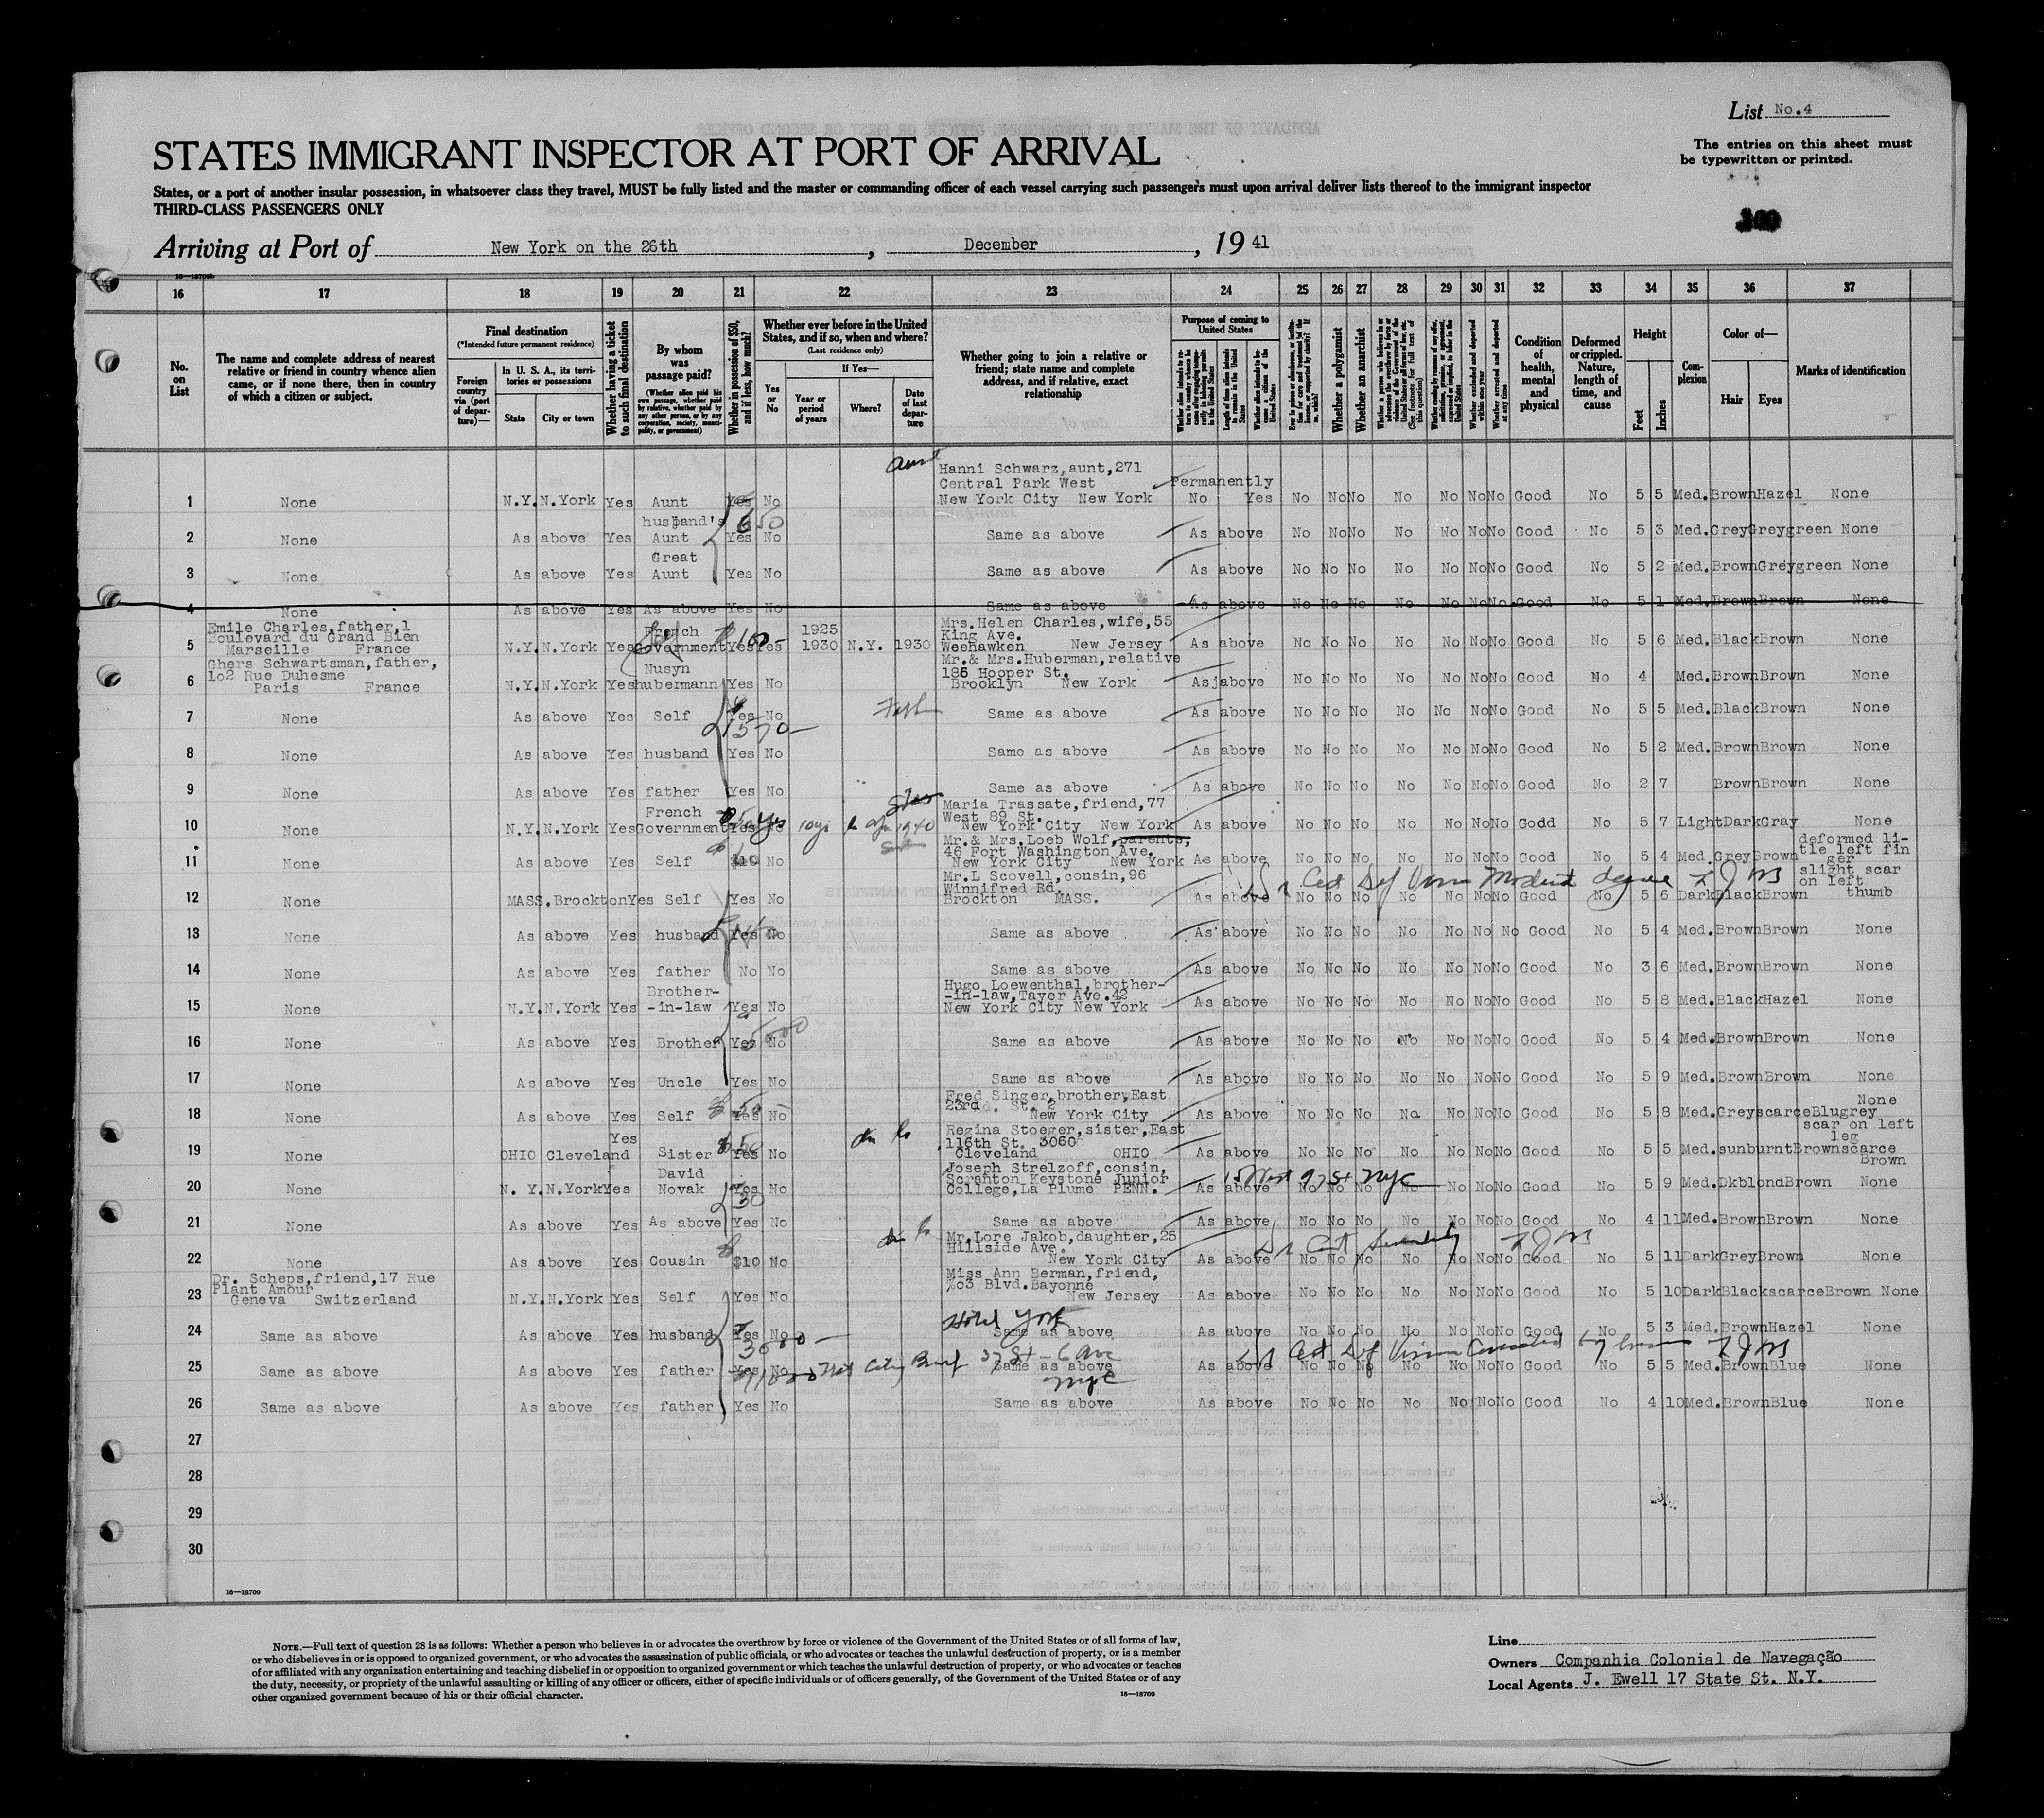 List No.4
The entries on this sheet must
be typewritten or printed.
STATES IMMIGRANT INSPECTOR AT PORT OF ARRIVAL
States, or a port of another insular possession, in whatsoever class they travel, MUST be fully listed and the master or commanding officer of each vessel carrying such passengers must upon arrival deliver lists thereof to the immigrant inspector
THIRD-CLASS PASSENGERS ONLY
Arriving at Port of New York on the 26th, December, 19 41
16 17 18 19 20 21 22 23 24 25 26 27 28 29 30 31 32 33 34 35 36 37
No. on List
The name and complete address of nearest relative or friend in country whence alien came, or if none there, then in country of which a citizen or subject.
Final destination
(*Intended future permanent residence)
Foreign country via (port of departure)—
In U. S. A., its territories or possessions
State
City or town
Whether having a ticket to such final destination
By whom was passage paid?
(Whether alien paid his own passage, whether paid by relative, whether paid by any other person, or by any corporation, society, municipality, or government)
Whether in possession of $50, and if less, how much?
Whether ever before in the United States, and if so, when and where?
(Last residence only)
Yes or No
If Yes—
Year or period of years
Where?
Date of last departure
Whether going to join a relative or friend; state name and complete address, and if relative, exact relationship
Purpose of coming to United States
Length of time alien intends to remain in the United States
Whether alien intends to become a citizen of the United States
Whether a polygamist
Whether an anarchist
Whether excluded and deported within one year
Whether arrested and deported at any time
Condition of health, mental and physical
Deformed or crippled. Nature, length of time, and cause
Height
Feet
Inches
Complexion
Color of—
Hair
Eyes
Marks of identification
aunt
Hanni Schwarz,aunt,271
Central Park West Permanently
1 None N.Y. N.York Yes Aunt Yes No New York City New York No Yes No No No No No No No Good No 5 5 Med. Brown Hazel None
husband's 650
2 None As above Yes Aunt Yes No Same as above As above No No No No No No No Good No 5 3 Med. Grey Greygreen None
Great
3 None As above Yes Aunt Yes No Same as above As above No No No No No No No Good No 5 2 Med. Brown Greygreen None
4 None As above Yes As above Yes No Same as above As above No No No No No No No Good No 5 1 Med. Brown Brown None
Emile Charles,father,1 French 1925 Mrs.Helen Charles,wife,55
Boulevard du Grand Bien 100 King Ave.
5 Marseille France N.Y. N.York Yes Government Yes Yes 1930 N.Y. 1930 Weehawken New Jersey As above No No No No No No No Good No 5 6 Med. Black Brown None
Ghers Schwartsman,father, Nusyn Mr.& Mrs.Huberman,relative
1o2 Rue Duhesme 186 Hooper St.
6 Paris France N.Y. N.York Yes hubermann Yes No Brooklyn New York As above No No No No No No No Good No 4 Med. Brown Brown None
7 None As above Yes Self Yes No Same as above As above No No No No No No No Good No 5 5 Med. Black Brown None
1570-
8 None As above Yes husband Yes No Same as above As above No No No No No No No Good No 5 2 Med. Brown Brown None
9 None As above Yes father Yes No Same as above As above No No No No No No No Good No 2 7 Brown Brown None
French Maria Trassate,friend,77
West 89 St.
10 None N.Y. N.York Yes Government Yes No Yes 1940 New York City New York As above No No No No No No No Godd No 5 7 Light Dark Gray None
Mr.& Mrs.Loeb Wolf,parents, deformed li-
46 Fort Washington Ave. tle left fin
11 None As above Yes Self $10 No New York City New York As above No No No No No No No Good No 5 4 Med. Grey Brown ger
Mr.L Scovell,consin,96 slight scar
Winnifred Rd. on left
12 None MASS. Brockton Yes Self Yes No Brockton MASS. As above No No No No No No No Good No 5 6 Dark Black Brown thumb
13 None As above Yes husband Yes No Same as above As above No No No No No No No Good No 5 4 Med. Brown Brown None
14 None As above Yes father No No Same as above As above No No No No No No No Good No 3 6 Med. Brown Brown None
Brother- Hugo Loewenthal,brother-
-in-law,Tayer Ave.42
15 None N.Y. N.York Yes -in-law Yes No New York City New York As above No No No No No No No Good No 5 8 Med. Black Hazel None
5000
16 None As above Yes Brother Yes No Same as above As above No No No No No No No Good No 5 4 Med. Brown Brown None
17 None As above Yes Uncle Yes No Same as above As above No No No No No No No Good No 5 9 Med. Brown Brown None
Fred Singer,brother,East None
18 None As above Yes Self Yes No New York City As above No No No No No No No Good No 5 8 Med. Greyscarce Blugrey
Regina Stoeger,sister,East scar on left
116th St. 3060 leg
19 None OHIO Cleveland Yes Sister Yes No Cleveland OHIO As above No No No No No No No Good No 5 5 Med.sunburnt Brownscarce Brown
David Joseph Strelzoff,consin,
Scranton Keystone Junior 15 West 97 St NYC
20 None N. Y. N.York Yes Novak Yes No College,La Plume PENN. As above No No No No No No No Good No 5 9 Med. Dkblond Brown None
30
21 None As above Yes As above Yes No Same as above As above No No No No No No No Good No 4 11 Med. Brown Brown None
Mr.Lore Jakob,daughter,25
Hillside Ave.
22 None As above Yes Cousin $10 No New York City As above No No No No No No No Good No 5 11 Dark Grey Brown None
Dr. Scheps,friend,17 Rue Miss Ann Berman,friend,
Plant Amour 7o3 Blvd.Bayonne
23 Geneva Switzerland N.Y. N.York Yes Self Yes No New Jersey As above No No No No No No No Good No 5 10 Dark Blackscarce Brown None
Hotel York
24 Same as above As above Yes husband Yes No Same as above As above No No No No No No No Good No 5 3 Med. Brown Hazel None
25 Same as above As above Yes father Yes No Same as above As above No No No No No No No Good No 5 5 Med. Brown Blue None
NYC
26 Same as above As above Yes father Yes No Same as above As above No No No No No No No Good No 4 10 Med. Brown Blue None
27
28
29
30
16—18709
NOTE.—Full text of question 28 is as follows: Whether a person who believes in or advocates the overthrow by force or violence of the Government of the United States or of all forms of law,
or who disbelieves in or is opposed to organized government, or who advocates the assassination of public officials, or who advocates or teaches the unlawful destruction of property, or is a member
of or affiliated with any organization entertaining and teaching disbelief in or opposition to organized government or which teaches the unlawful destruction of property, or who advocates or teaches
the duty, necessity, or propriety of the unlawful assaulting or killing of any officer or officers, either of specific individuals or of officers generally, of the Government of the United States or of any
other organized government because of his or their official character.
16—18709
Line
Owners Companhia Colonial de Navegação
Local Agents J. Ewell 17 State St. N.Y.